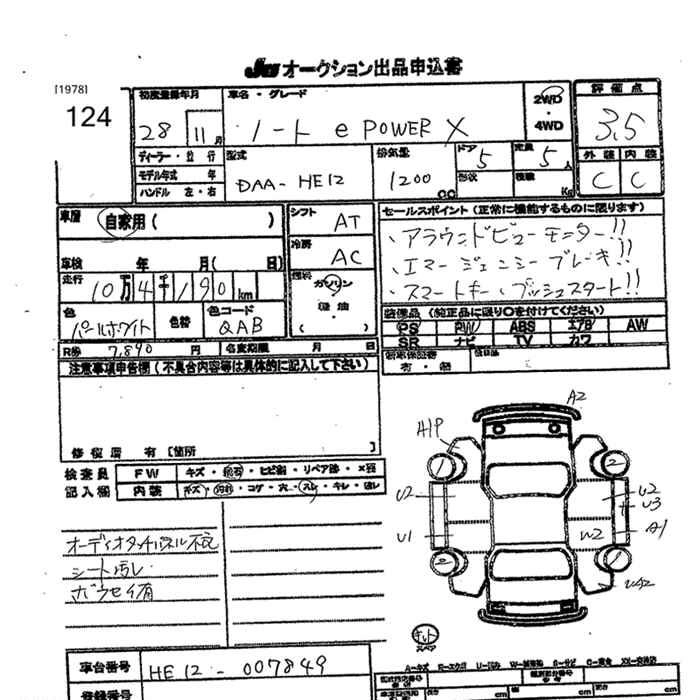 JU オークション出品申込書
[1978]
124
初度登録年月
28 11月
車名・グレード
ノート e POWER X
2WD・4WD
評価点
3.5
外装 内装
C C
ディーラー・並行
モデル年式 年
ハンドル 左・右
型式
DAA-HE12
排気量
1200 CC
ドア
5
定員
5人
形状
積載
Kg
車歴
自家用( )
車検 年 月( 日)
走行
10万4千190km
色
パールホワイト
色替
色コード
QAB
シフト
AT
冷房
AC
燃料
ガソリン
・
軽油
・
( )
セールスポイント(正常に機能するものに限ります)
、アラウンドビューモニター!!
、エマージェンシーブレーキ!!
、スマートキー、プッシュスタート!!
装備品(純正品に限り〇を付けてください)
PS PW ABS エアB AW
SR ナビ TV カワ
新車保証書
有・無
R券 7,890 円 名変期限 月 日
注意事項申告欄(不具合内容等は具体的に記入して下さい)
修復歴 有〔箇所 〕
検査員
記入欄
FW キズ・飛石・ヒビ割・リペア跡・×要
内装 キズ・汚れ・コゲ・穴・スレ・キレ・
オーディオタッチパネル不良
シート汚レ
ボウセイ有
A2
A1P
2
2
U2
U2
U3
U1
W2
A1
2
2
キット
スペア
A=キズ
車台番号
HE12-007849
登録番号